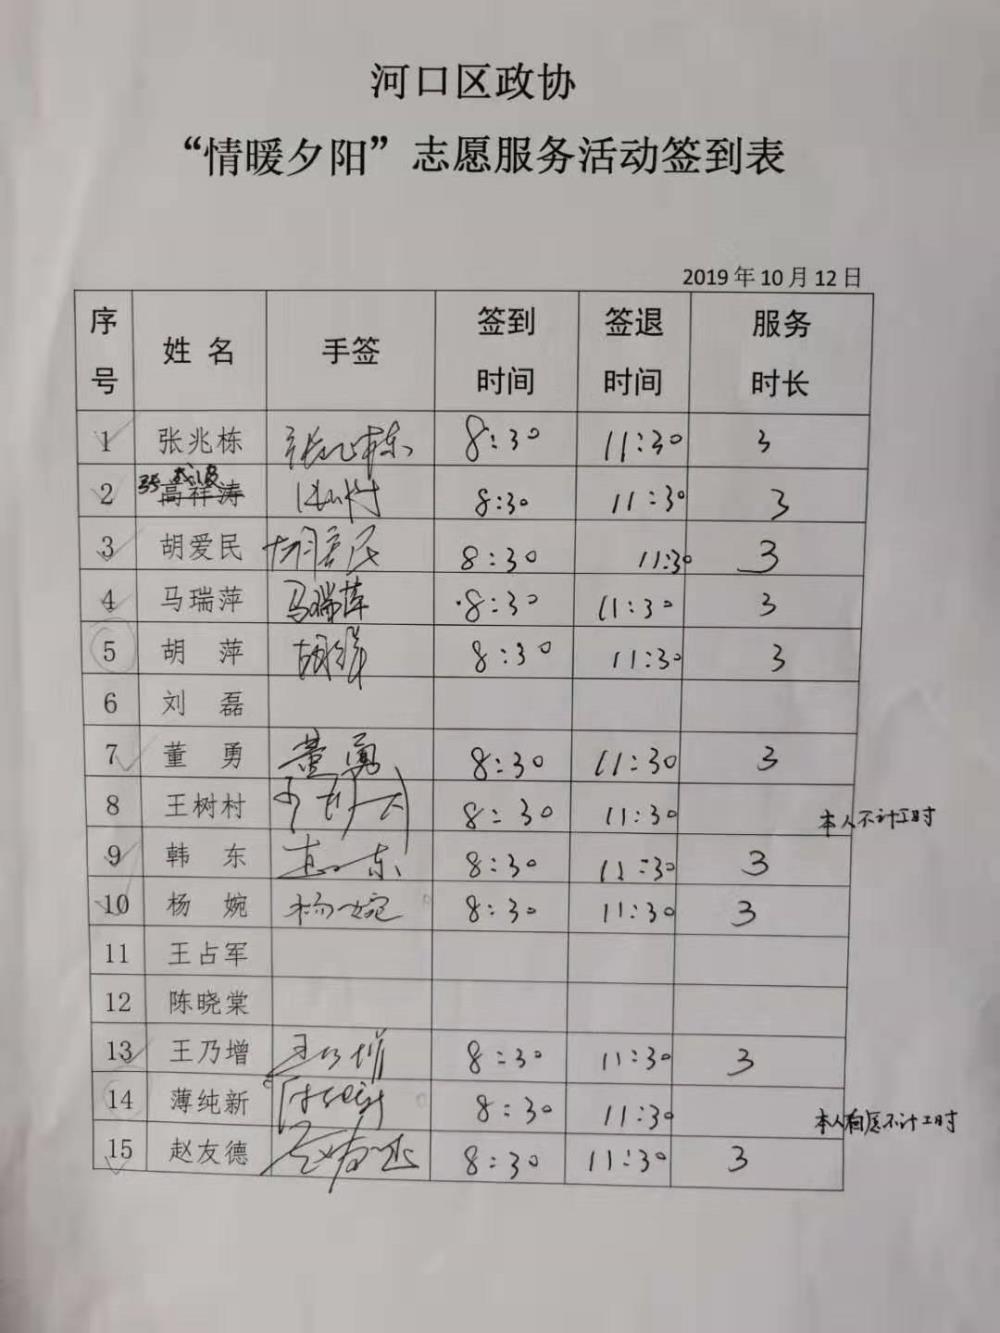 河口区政协
“情暖夕阳”志愿服务活动签到表
2019年10月12日
序号 姓名 手签 签到时间 签退时间 服务时长
1 张兆栋 张兆栋 8:30 11:30 3
2 高祥涛 8:30 11:30 3
3 胡爱民 胡爱民 8:30 11:30 3
4 马瑞萍 马瑞萍 8:30 11:30 3
5 胡萍 胡萍 8:30 11:30 3
6 刘磊
7 董勇 董勇 8:30 11:30 3
8 王树村 8:30 11:30 本人不计工时
9 韩东 韩东 8:30 11:30 3
10 杨婉 杨婉 8:30 11:30 3
11 王占军
12 陈晓棠
13 王乃增 王乃增 8:30 11:30 3
14 薄纯新 8:30 11:30 本人自愿不计工时
15 赵友德 赵友德 8:30 11:30 3